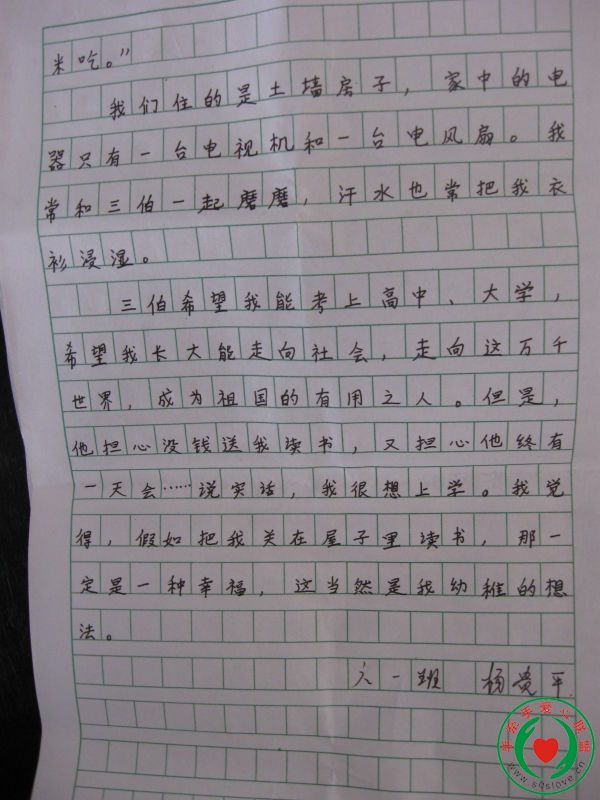 米吃。”
我们住的是土墙房子，家中的电
器只有一台电视机和一台电风扇。我
常和三伯一起磨磨，汗水也常把我衣
衫浸湿。
三伯希望我能考上高中、大学，
希望我长大能走向社会，走向这万千
世界，成为祖国的有用之人。但是，
他担心没钱送我读书，又担心他终有
一天会……说实话，我很想上学。我觉
得，假如把我关在屋子里读书，那一
定是一种幸福，这当然是我幼稚的想
法。
六一班 杨贵平
手牵手爱心联盟
www.sqslove.cn